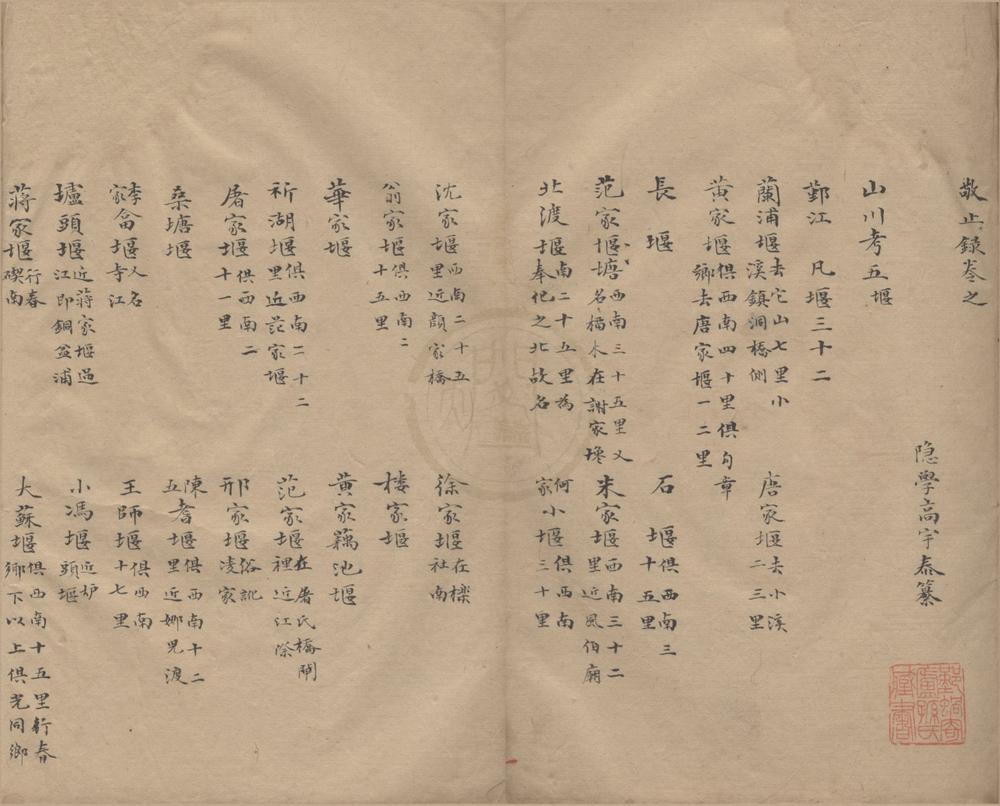 敬止錄卷之
隐學高宇泰纂
山川考五堰
鄞江 凡堰三十二
蘭浦堰去它山七里小溪鎮洞橋側 唐家堰去小溪二三里
黄家堰俱西南四十里俱句章鄉去唐家堰一二里
長堰 石堰俱西南三十五里
范家堰塘西南三十五里又名楊木在謝家 米家堰西南三十二里近風伯廟
北渡堰南二十五里為奉化之北故名 何家小堰俱西南三十里
沈家堰西南二十五里近顔家橋 徐家堰在櫟社南
翁家堰俱西南二十五里 楼家堰
華家堰 黄家藕池堰
祈湖堰俱西南二十二里近范家堰 范家堰在屠氏橋閘裡近江際
屠家堰俱西南二十一里 邢家堰俗訛凌家
桑塘堰 陳五耆堰俱西南十二里近娜兒渡
李家㑒堰又名寺江 王師堰俱西南十七里
壚頭堰近蔣家堰過江即銅盆浦 小馮堰近炉頭堰
蔣家堰行春碶南 大蘇堰俱西南十五里行春鄉下以上俱光同鄉